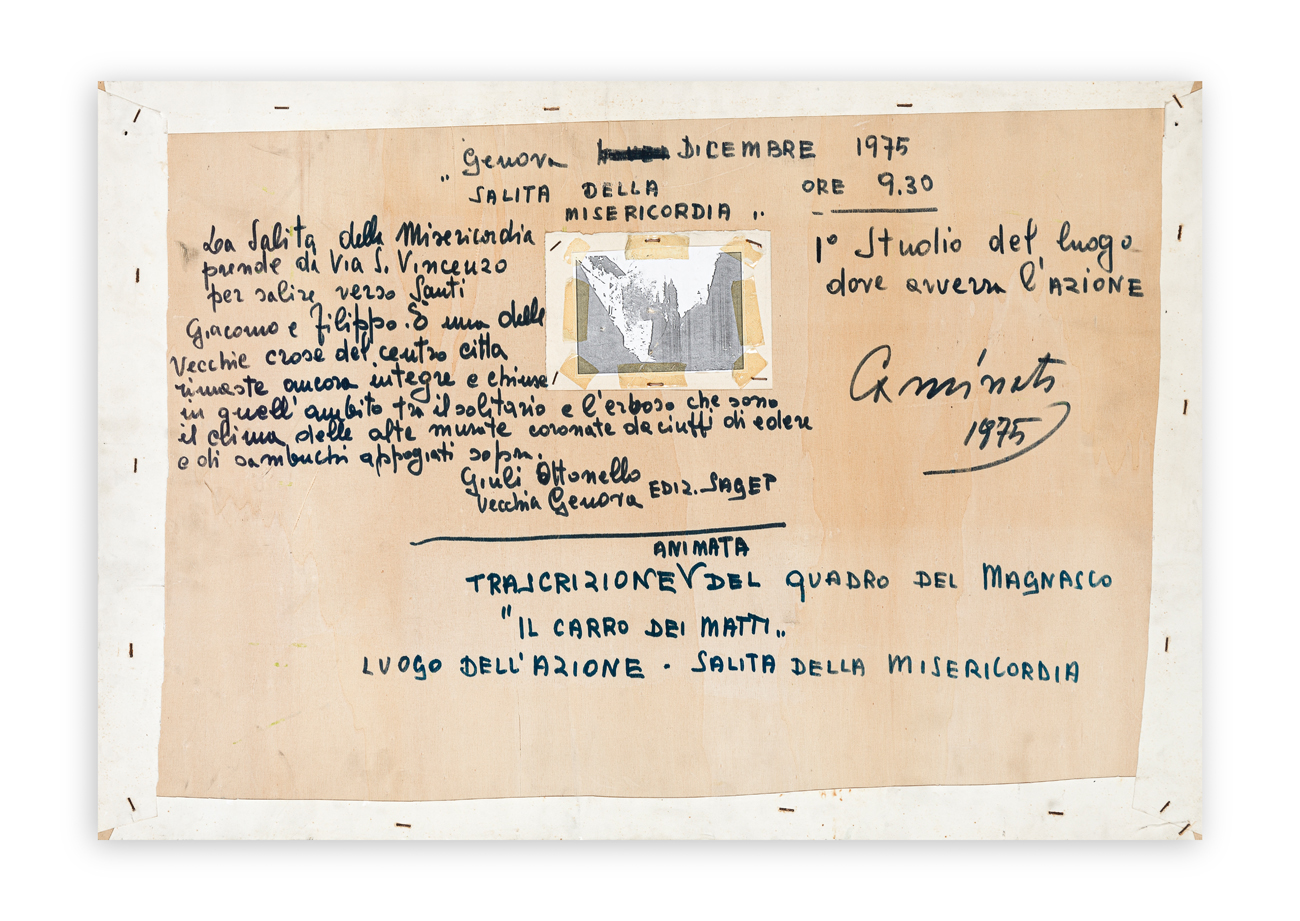 Genova DICEMBRE 1975
" SALITA DELLA
MISERICORDIA "
ORE 9.30
La Salita della Misericordia
prende da Via S. Vincenzo
per salire verso Santi
Giacomo e Filippo. È una delle
Vecchie crose del centro città
rimaste ancora integre e chiuse
in quell'ambito tra il solitario e l'erboso che sono
il clima delle alte murate coronate da ciuffi di edere
e di sambuchi appogiati sopra.
Giuli Ottonello
Vecchia Genova EDIZ. SAGEP
1° Studio del luogo
dove avverrà l'AZIONE
Caminati
1975
ANIMATA
TRASCRIZIONE V DEL QUADRO DEL MAGNASCO
"IL CARRO DEI MATTI"
LUOGO DELL'AZIONE · SALITA DELLA MISERICORDIA